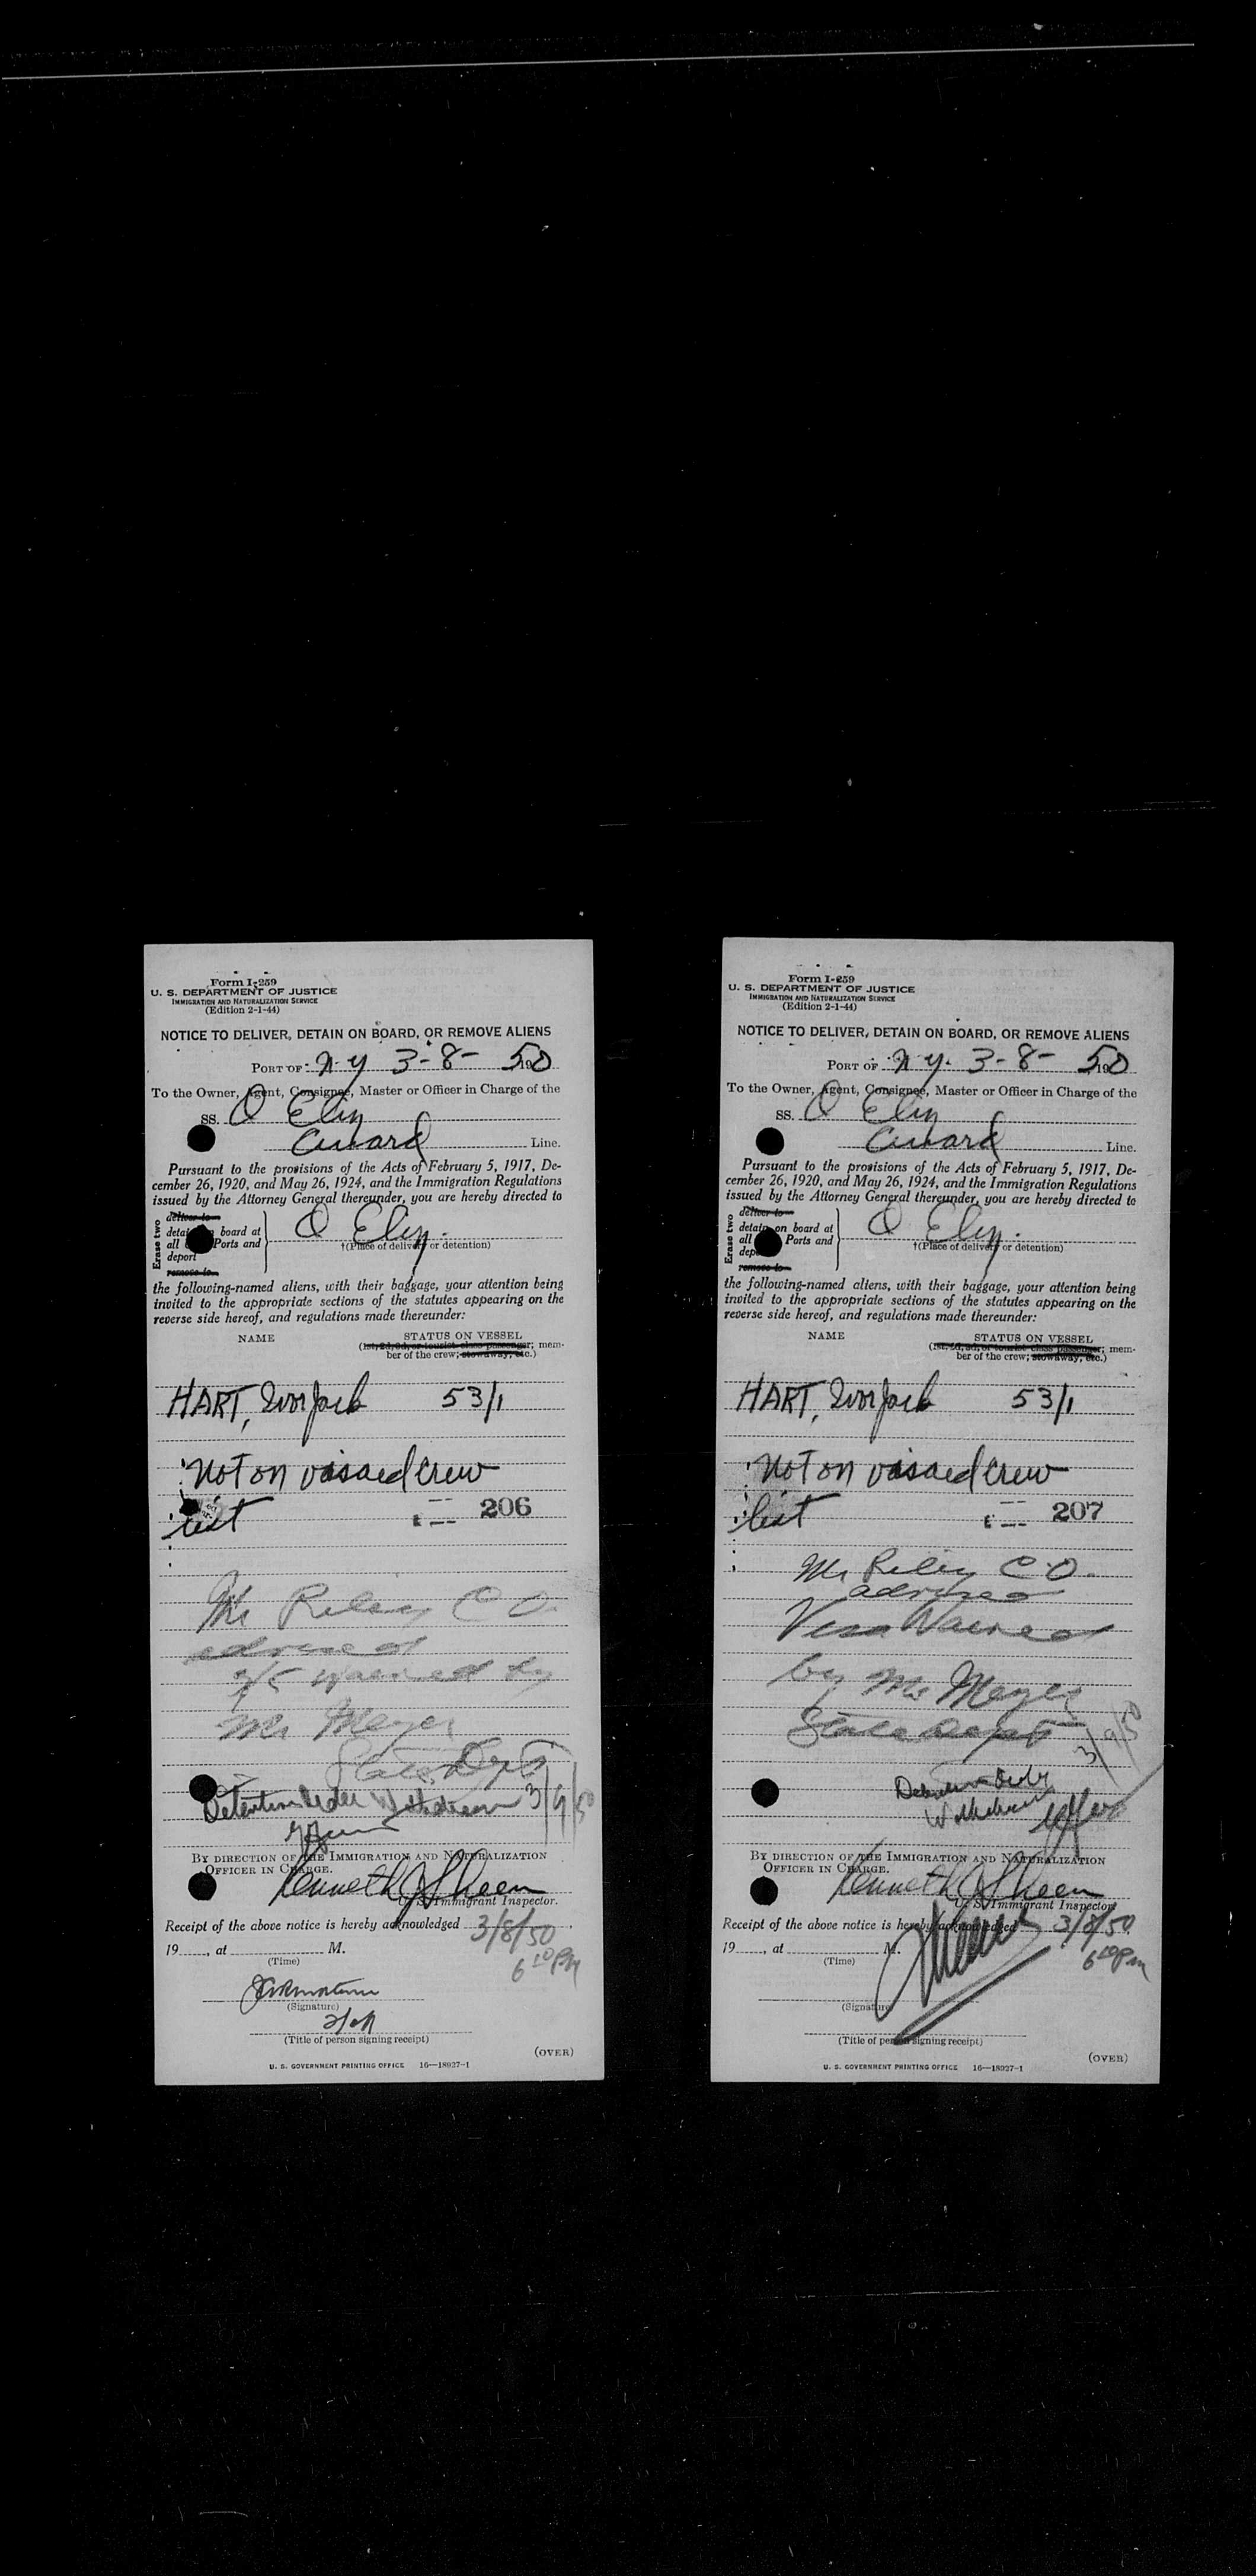 Form I-259
U. S. DEPARTMENT OF JUSTICE
IMMIGRATION AND NATURALIZATION SERVICE
(Edition 2-1-44)
NOTICE TO DELIVER, DETAIN ON BOARD, OR REMOVE ALIENS
PORT OF N Y 3-8- 1950
To the Owner, Agent, Consignee, Master or Officer in Charge of the
SS. Q Eliz
Cunard Line.
Pursuant to the provisions of the Acts of February 5, 1917, De-
cember 26, 1920, and May 26, 1924, and the Immigration Regulations
issued by the Attorney General thereunder, you are hereby directed to
Erase two
deliver to
detain on board at
all Ports and
deport
remove to
Q Eliz.
†(Place of delivery or detention)
the following-named aliens, with their baggage, your attention being
invited to the appropriate sections of the statutes appearing on the
reverse side hereof, and regulations made thereunder:
NAME STATUS ON VESSEL
(1st, 2d, 3d, or tourist class passenger; mem-
ber of the crew; stowaway, etc.)
HART, 53/1
Not on visaed crew
list 206
Mr Riley C O.
advised
waived by
Mr Meyer
State Dept
Detention Order Withdrawn 3/9/50
BY DIRECTION OF THE IMMIGRATION AND NATURALIZATION
OFFICER IN CHARGE.
Kenneth J Sheen
U. S. Immigrant Inspector.
Receipt of the above notice is hereby acknowledged 3/8/50
19 , at M. 6 10 PM
(Time)
(Signature)
(Title of person signing receipt)
(OVER)
U. S. GOVERNMENT PRINTING OFFICE 16—18927-1
Form I-259
U. S. DEPARTMENT OF JUSTICE
IMMIGRATION AND NATURALIZATION SERVICE
(Edition 2-1-44)
NOTICE TO DELIVER, DETAIN ON BOARD, OR REMOVE ALIENS
PORT OF N Y. 3-8- 1950
To the Owner, Agent, Consignee, Master or Officer in Charge of the
SS. Q Eliz
Cunard Line.
Pursuant to the provisions of the Acts of February 5, 1917, De-
cember 26, 1920, and May 26, 1924, and the Immigration Regulations
issued by the Attorney General thereunder, you are hereby directed to
Erase two
deliver to
detain on board at
all Ports and
deport
remove to
Q Eliz.
†(Place of delivery or detention)
the following-named aliens, with their baggage, your attention being
invited to the appropriate sections of the statutes appearing on the
reverse side hereof, and regulations made thereunder:
NAME STATUS ON VESSEL
(1st, 2d, 3d, or tourist class passenger; mem-
ber of the crew; stowaway, etc.)
HART, 53/1
Not on visaed crew
list 207
Mr Riley C.O.
advised
Visa Waived
by Mr Meyer
State Dept 3/9/50
Detention Order
Withdrawn
BY DIRECTION OF THE IMMIGRATION AND NATURALIZATION
OFFICER IN CHARGE.
Kenneth J Sheen
U. S. Immigrant Inspector.
Receipt of the above notice is hereby acknowledged 3/8/50
19 , at M. 6 10 PM
(Time)
(Signature)
(Title of person signing receipt)
(OVER)
U. S. GOVERNMENT PRINTING OFFICE 16—18927-1